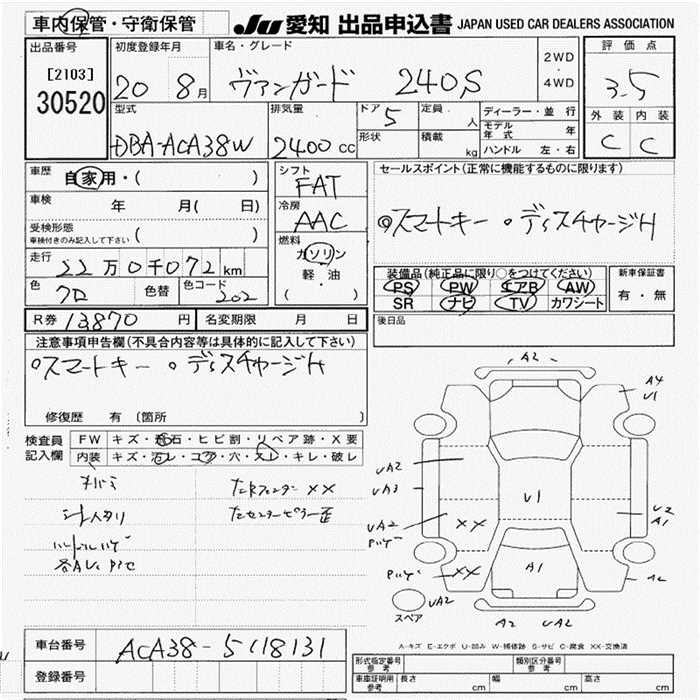 車内保管・守衛保管
JU 愛知 出品申込書 JAPAN USED CAR DEALERS ASSOCIATION
出品番号
[2103]
30520
初度登録年月
20 8月
車名・グレード
ヴァンガード 240S
2WD
・
4WD
評価点
3.5
外装 内装
C C
型式
DBA-ACA38W
排気量
2400 cc
ドア 5
形状
定員 人
積載 kg
ディーラー・並行
モデル年式 年
ハンドル 左・右
車歴
自家用・( )
車検 年 月( 日)
受検形態
車検付きのみ記入して下さい ( )
走行 22万0千072km
色 クロ 色替 色コード 202
シフト
FAT
冷房
AAC
燃料
ガソリン
軽・油
( )
セールスポイント(正常に機能するものに限ります)
◎スマートキー ◦ディスチャージH
装備品(純正品に限り○をつけてください)
PS PW エアB AW
SR ナビ TV カワシート
新車保証書
有・無
後日品
R券 13870 円 名変期限 月 日
注意事項申告欄(不具合内容等は具体的に記入して下さい)
◦スマートキー ◦ディスチャージH
修復歴 有 (箇所 )
検査員記入欄
FW キズ・飛石・ヒビ割・リペア跡・X要
内装 キズ・汚レ・コゲ・穴・スレ・キレ・破レ
シート人タリ
A2
A4
U1
UA2
UA3
UA2
XX
U1
U2
A1
XX
A1
A2
スペア
UA2
A2 UA2
A-キズ E-エクボ U-凹み W-補修跡 S-サビ C-腐食 XX-交換済
車台番号 ACA38-5118131
登録番号
形式指定番号 参考
類別区分番号 参考
車庫証明用 参考 長さ cm 幅 cm 高さ cm